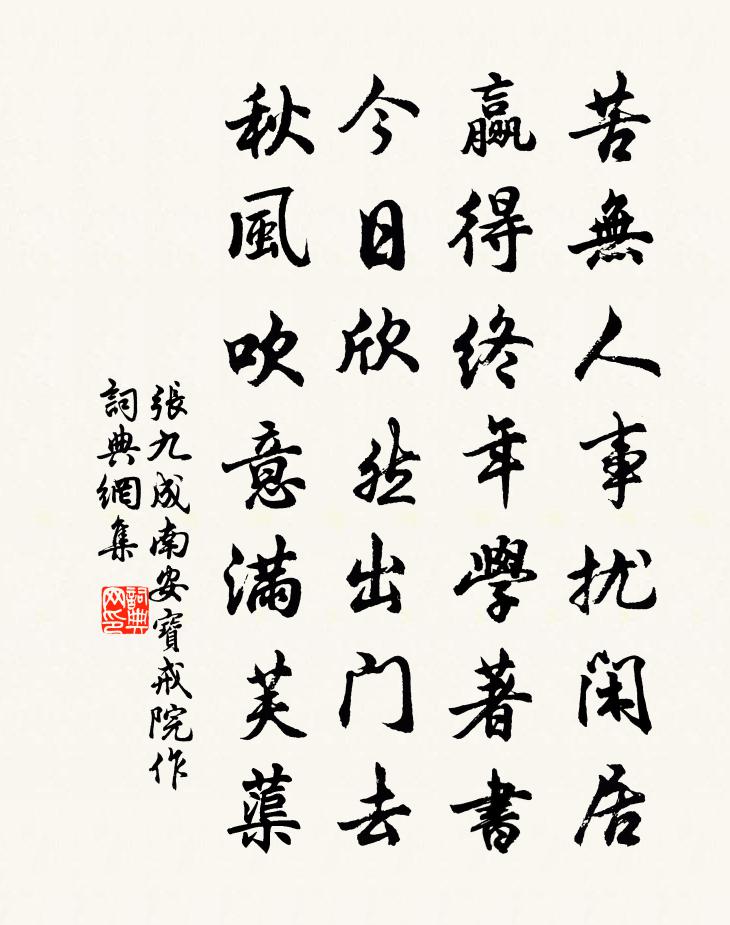 苦無人事扰闲居
贏得終年學著書
今日欣然出门去
秋風吹意滿芙蕖
張九成南安寶戒院作
詞典網集
詞典网印